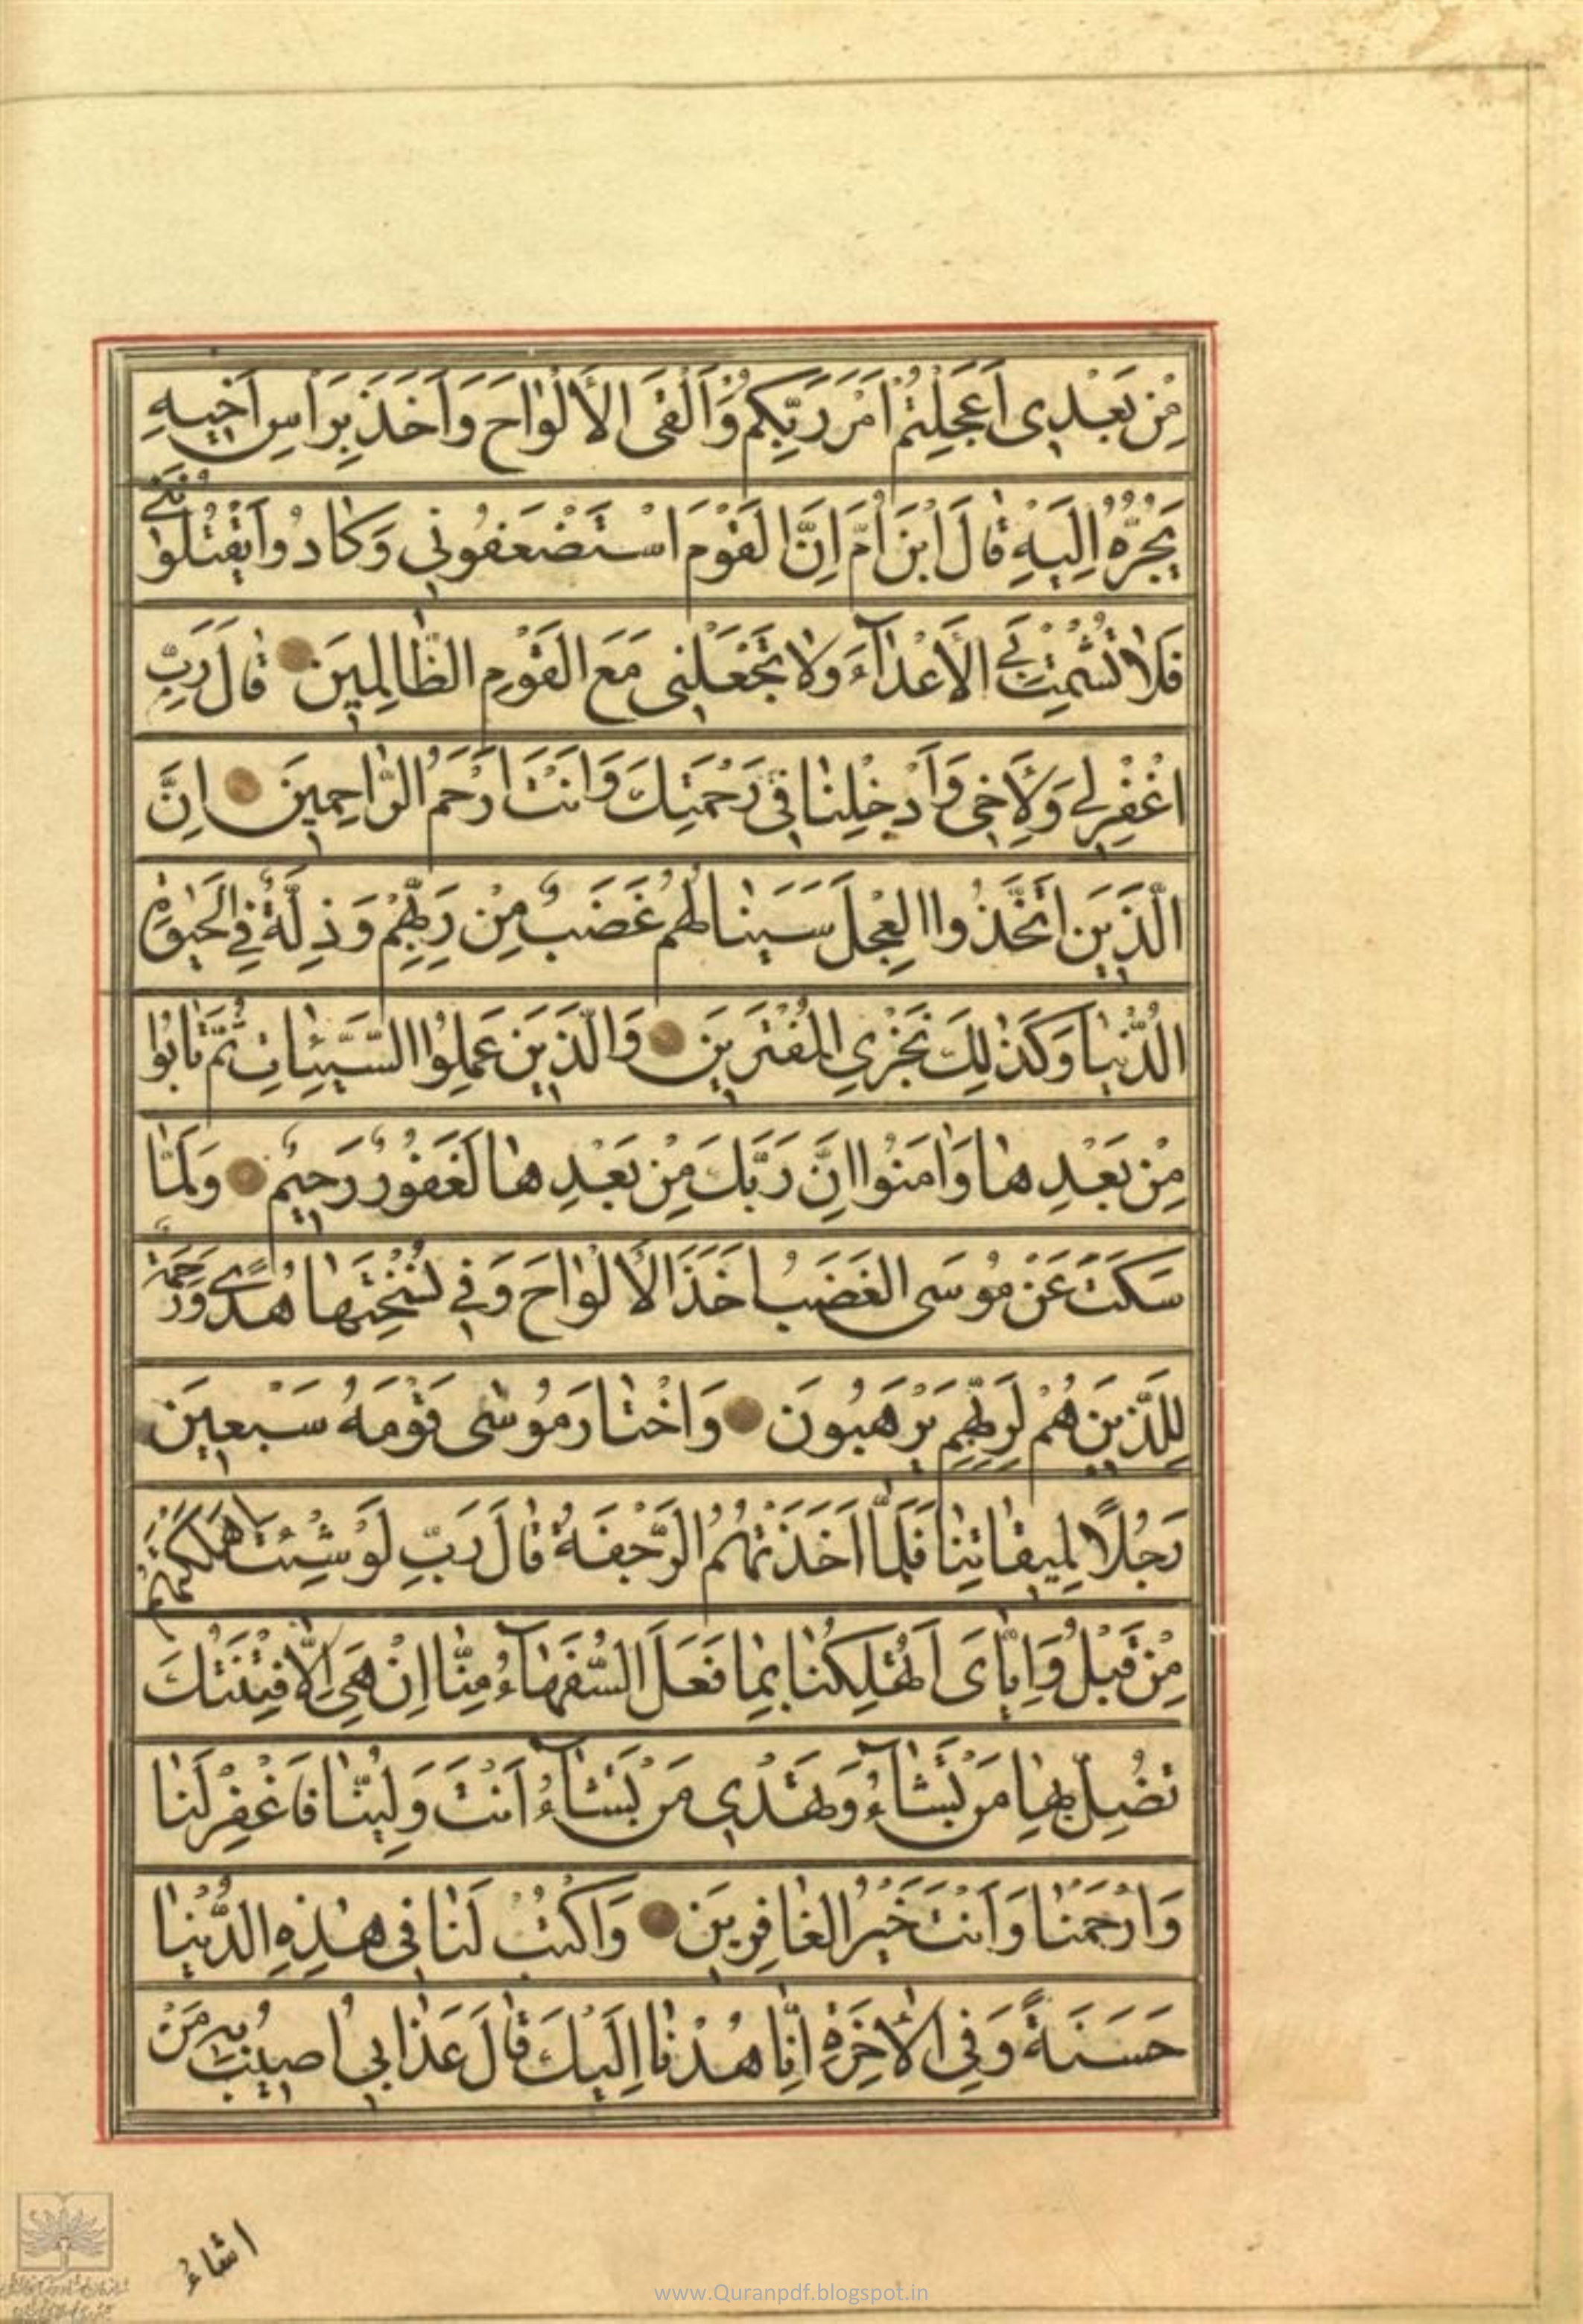 مِنْ بَعْدِی اَعَجِلْتُمْ اَمْرَ رَبِّكُمْ وَاَلْقَی الْاَلْوٰاحَ وَاَخَذَ بِرَاْسِ اَخِیهِ
یَجُرُّهُ اِلَیْهِ قٰالَ ابْنَ اُمَّ اِنَّ الْقَوْمَ اسْتَضْعَفُونِی وَكٰادُوا یَقْتُلُونَنِی
فَلٰا تُشْمِتْ بِیَ الْاَعْدٰآءَ وَلٰا تَجْعَلْنِی مَعَ الْقَوْمِ الظّٰالِمِینَ قٰالَ رَبِّ
اغْفِرْ لِی وَلِاَخِی وَاَدْخِلْنٰا فِی رَحْمَتِكَ وَاَنْتَ اَرْحَمُ الرّٰاحِمِینَ اِنَّ
الَّذِینَ اتَّخَذُوا الْعِجْلَ سَیَنٰالُهُمْ غَضَبٌ مِنْ رَبِّهِمْ وَذِلَّةٌ فِی الْحَیٰوةِ
الدُّنْیٰا وَكَذٰلِكَ نَجْزِی الْمُفْتَرِینَ وَالَّذِینَ عَمِلُوا السَّیِّئٰاتِ ثُمَّ تٰابُوا
مِنْ بَعْدِهٰا وَاٰمَنُوا اِنَّ رَبَّكَ مِنْ بَعْدِهٰا لَغَفُورٌ رَحِیمٌ وَلَمّٰا
سَكَتَ عَنْ مُوسَی الْغَضَبُ اَخَذَ الْاَلْوٰاحَ وَفِی نُسْخَتِهٰا هُدًی وَرَحْمَةٌ
لِلَّذِینَ هُمْ لِرَبِّهِمْ یَرْهَبُونَ وَاخْتٰارَ مُوسٰی قَوْمَهُ سَبْعِینَ
رَجُلًا لِمِیقٰاتِنٰا فَلَمّٰا اَخَذَتْهُمُ الرَّجْفَةُ قٰالَ رَبِّ لَوْ شِئْتَ اَهْلَكْتَهُمْ
مِنْ قَبْلُ وَاِیّٰایَ اَتُهْلِكُنٰا بِمٰا فَعَلَ السُّفَهٰآءُ مِنّٰا اِنْ هِیَ اِلّٰا فِتْنَتُكَ
تُضِلُّ بِهٰا مَنْ تَشٰآءُ وَتَهْدِی مَنْ تَشٰآءُ اَنْتَ وَلِیُّنٰا فَاغْفِرْ لَنٰا
وَارْحَمْنٰا وَاَنْتَ خَیْرُ الْغٰافِرِینَ وَاكْتُبْ لَنٰا فِی هٰذِهِ الدُّنْیٰا
حَسَنَةً وَفِی الْاٰخِرَةِ اِنّٰا هُدْنٰا اِلَیْكَ قٰالَ عَذٰابِی اُصِیبُ بِهِ مَنْ
اشٰاءُ
www.Quranpdf.blogspot.in